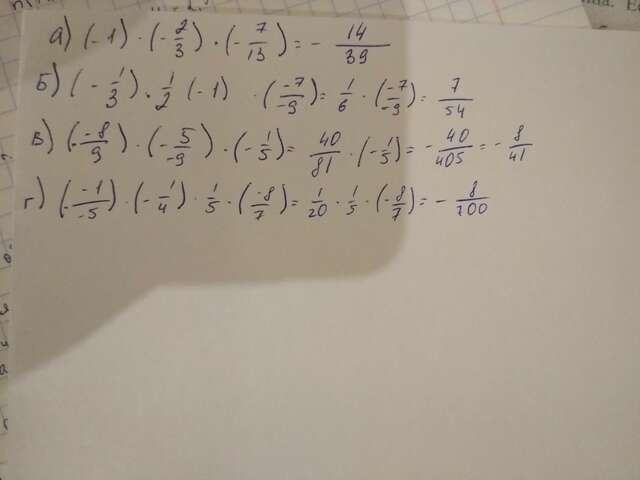 а) (-1) · (-2/3) · (-7/13) = - 14/39
Б) (-1/3) · 1/2 (-1) · (-7/-9) = 1/6 · (-7/-9) = 7/54
в) (--8/9) · (-5/-9) · (-1/5) = 40/81 · (-1/5) = - 40/405 = - 8/41
г) (--1/-5) · (-1/4) · 1/5 · (-8/7) = 1/20 · 1/5 · (-8/7) = - 8/700